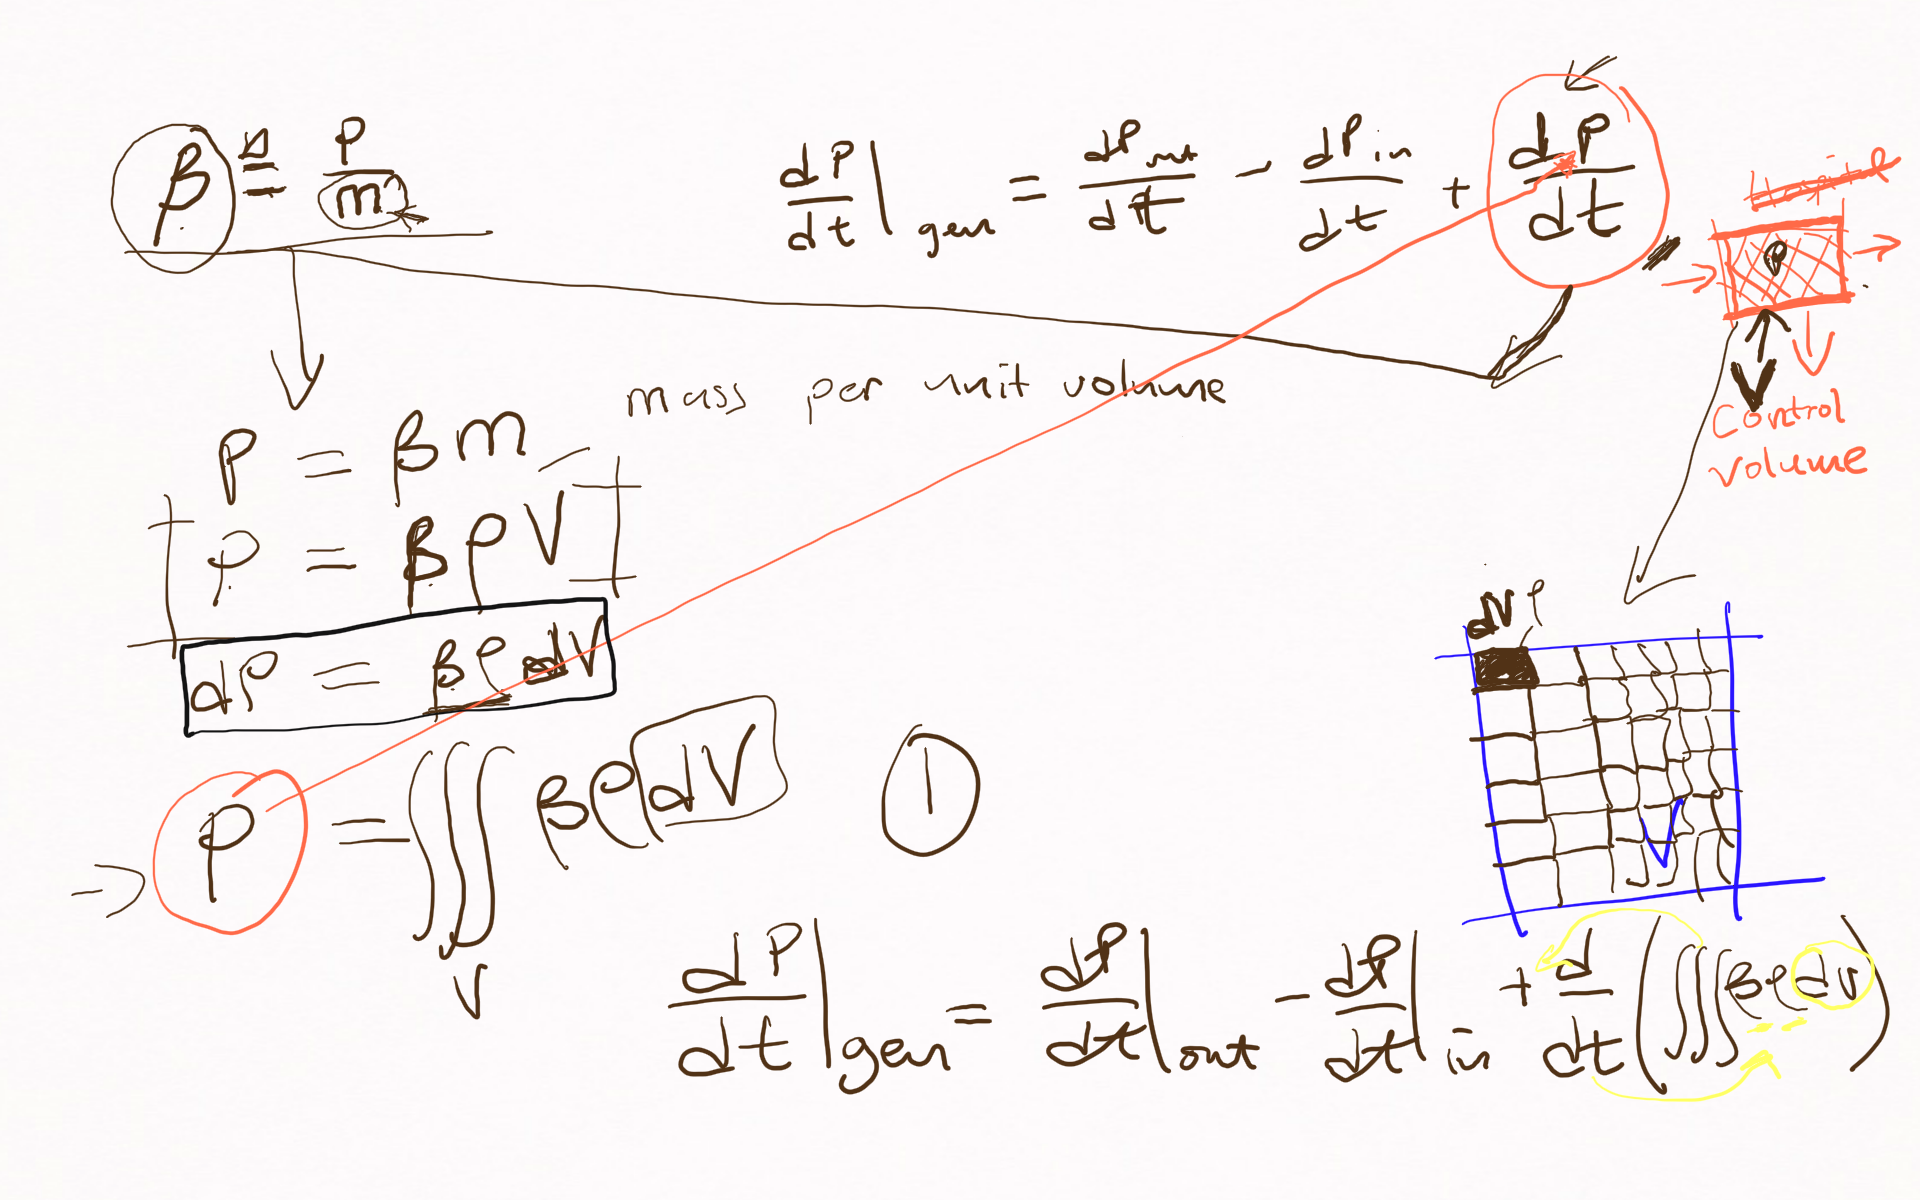 β ≜ P/m
dP/dt|gen = dPout/dt − dPin/dt + dP/dt
Hospital
P
Control
volume
mass per unit volume
P = βm
P = βρV
dP = βρdV
P = ∭V βρdV
1
dV ρ
V
dP/dt|gen = dP/dt|out − dP/dt|in + d/dt(∭βρdV)